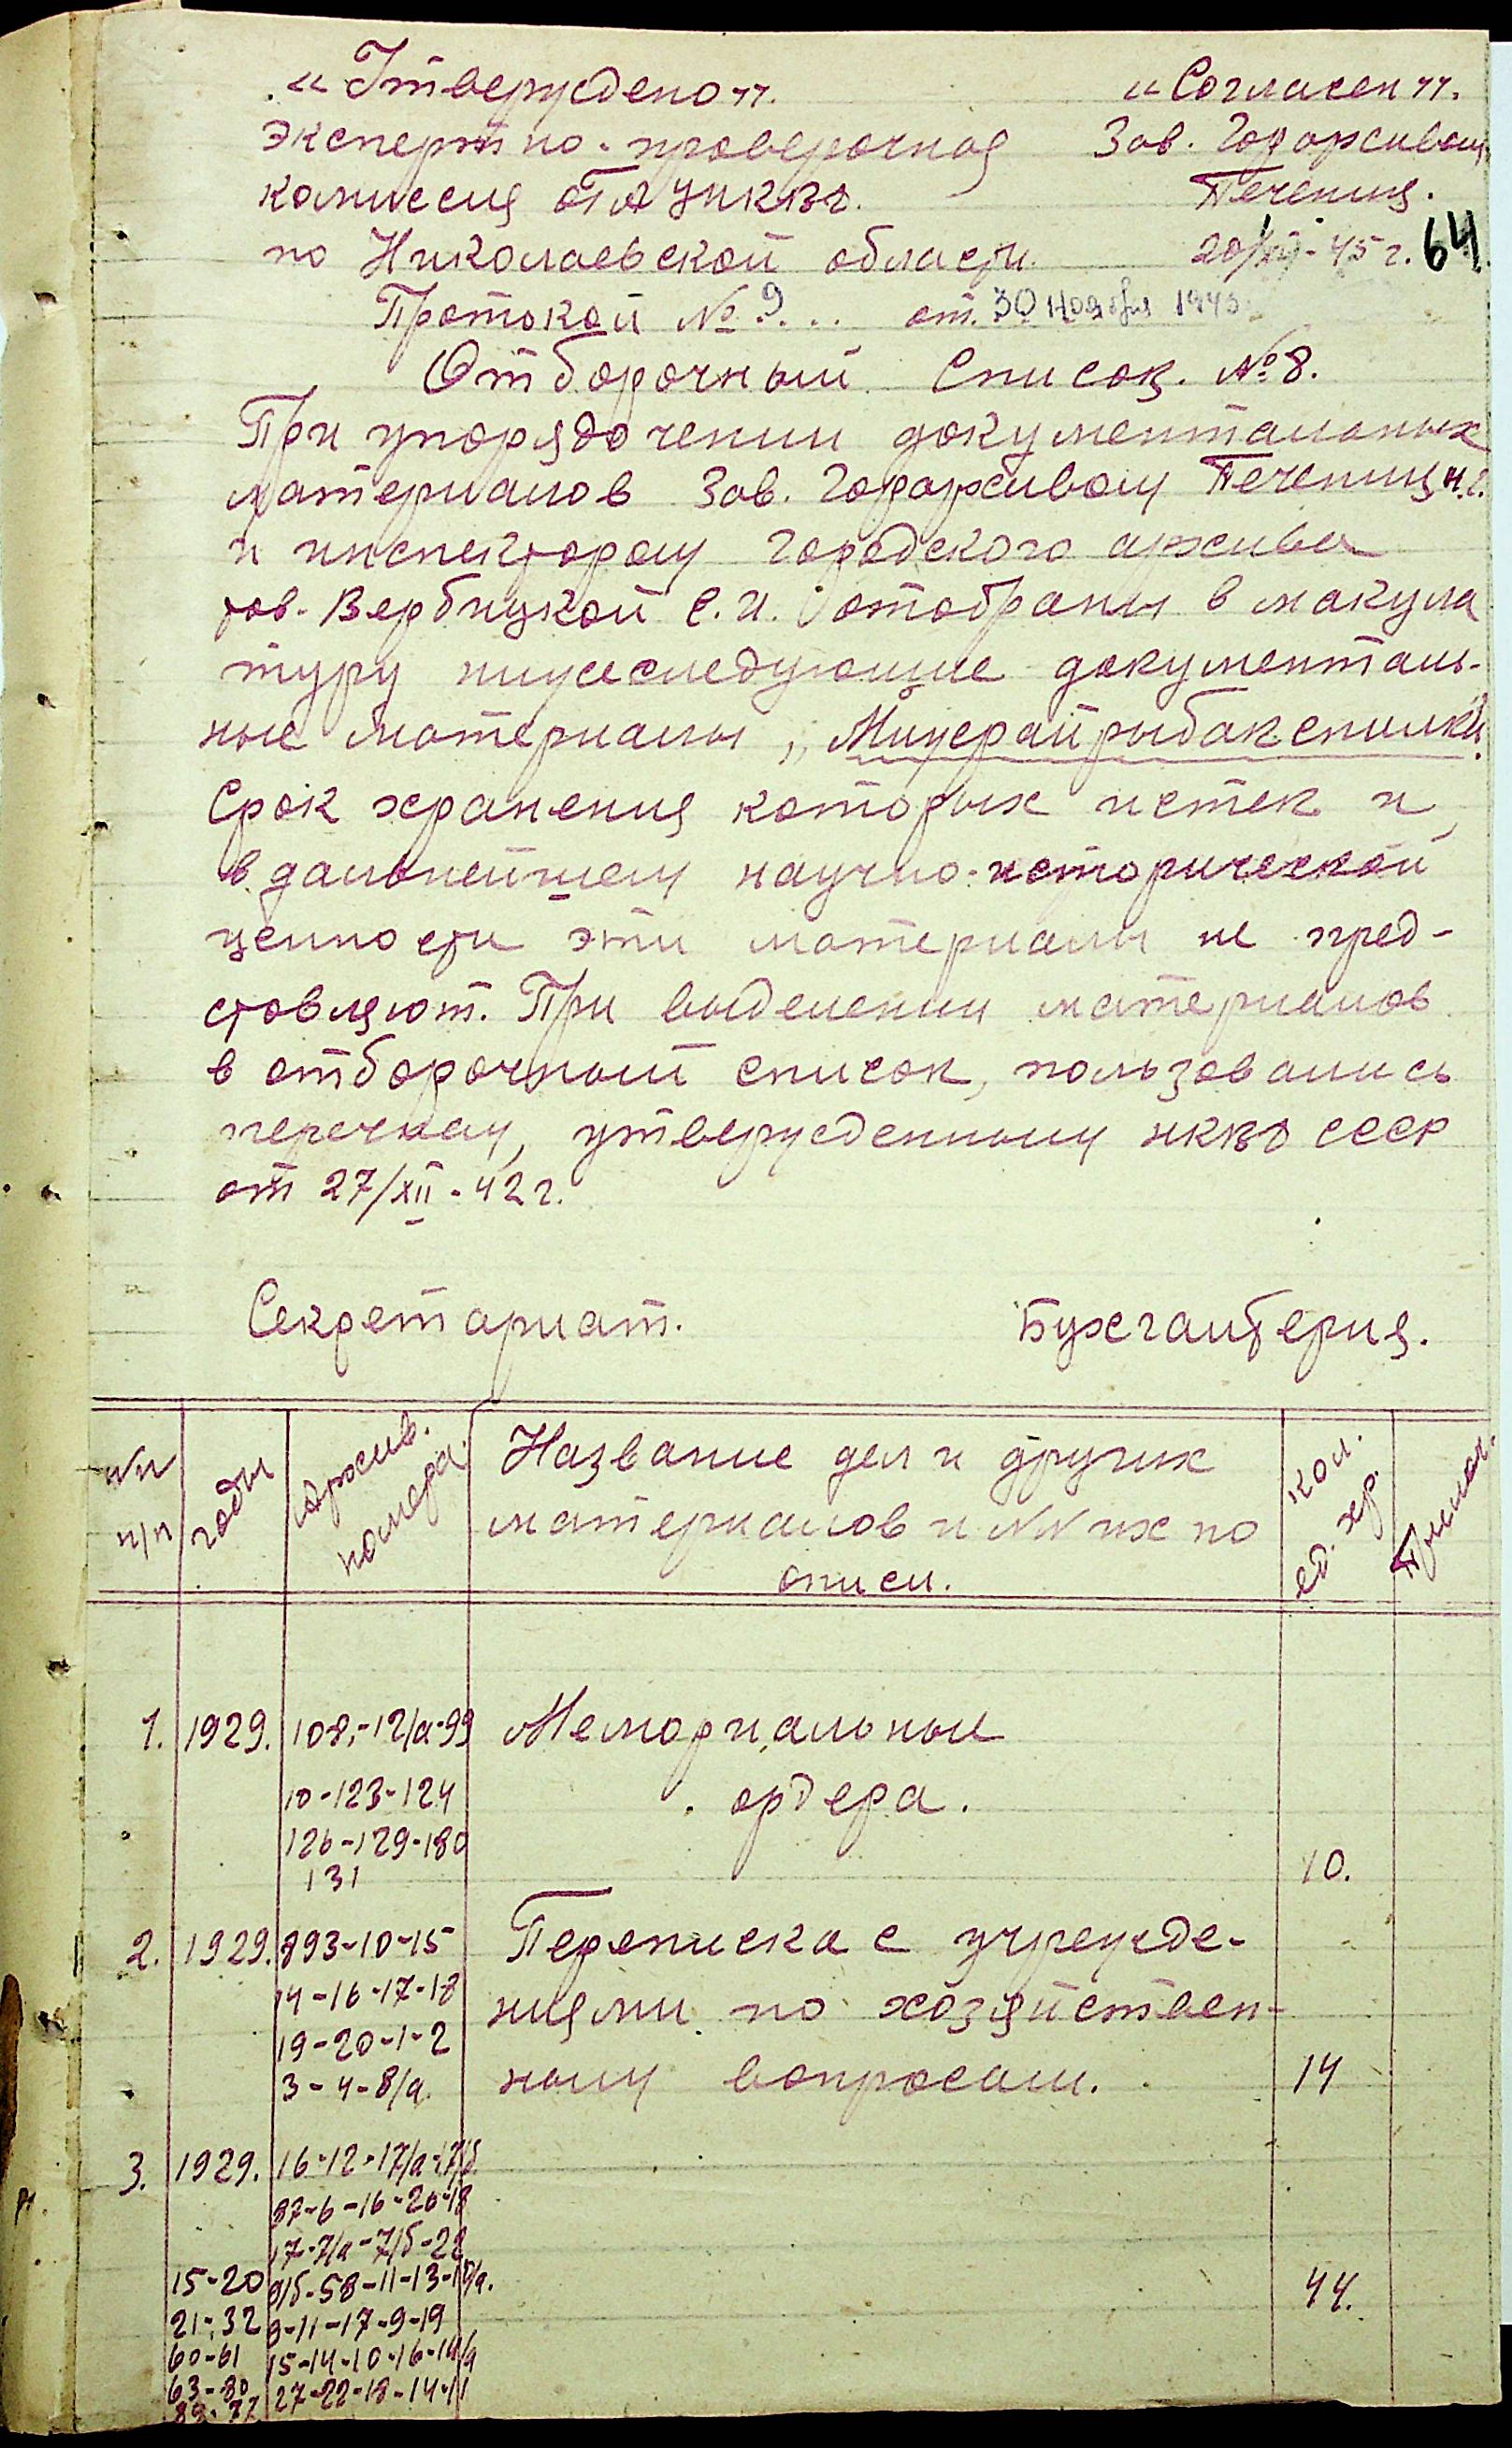 „Утверждено".
Экспертно-проверочная
комиссия ОГА УНКВД.
по Николаевской области.
Протокол № 9... от 30 ноября 1945
„Согласен".
Зав. Горархивом
Печениц.
20/XI-45 г.
64
Отборочный Список. № 8.
При упорядочении документальных
материалов Зав. Горархивом Печениц Н.С.
и инспектором городского архива
тов. Вербицкой С.И. отобраны в макула
туру нижеследующие документаль-
ные материалы „Мижерайрыбакспилки"
Срок хранения которых истек и
в дальнейшем научно-исторической
ценности эти материалы не пред-
ставляют. При выделении материалов
в отборочный список, пользовались
перечнем, утвержденному НКВД СССР
от 27/XII-42 г.
Секретариат. Бухгалтерия.
№№ п/п
годы
Архив. номера.
Название дел и других
материалов и №№ их по
описи.
Кол. ед. хр.
Примеч.
1. 1929. 108,-12/а-99 Мемориальные
10-123-124 ордера.
126-129-130
131 10.
2. 1929. 893-10-15 Переписка с учрежде-
14-16-17-18 ниями по хозяйствен-
19-20-1-2
3-4-8/а. ным вопросам. 14
3. 1929. 16-12-17/а-17/б
37-6-16-20-18
17-7/а-7/б-22
15-20 9/б-58-11-13-15/а. 44.
21-32 9-11-17-9-19
60-61 15-14-10-16-14/а
63-80 27-22-18-14-11